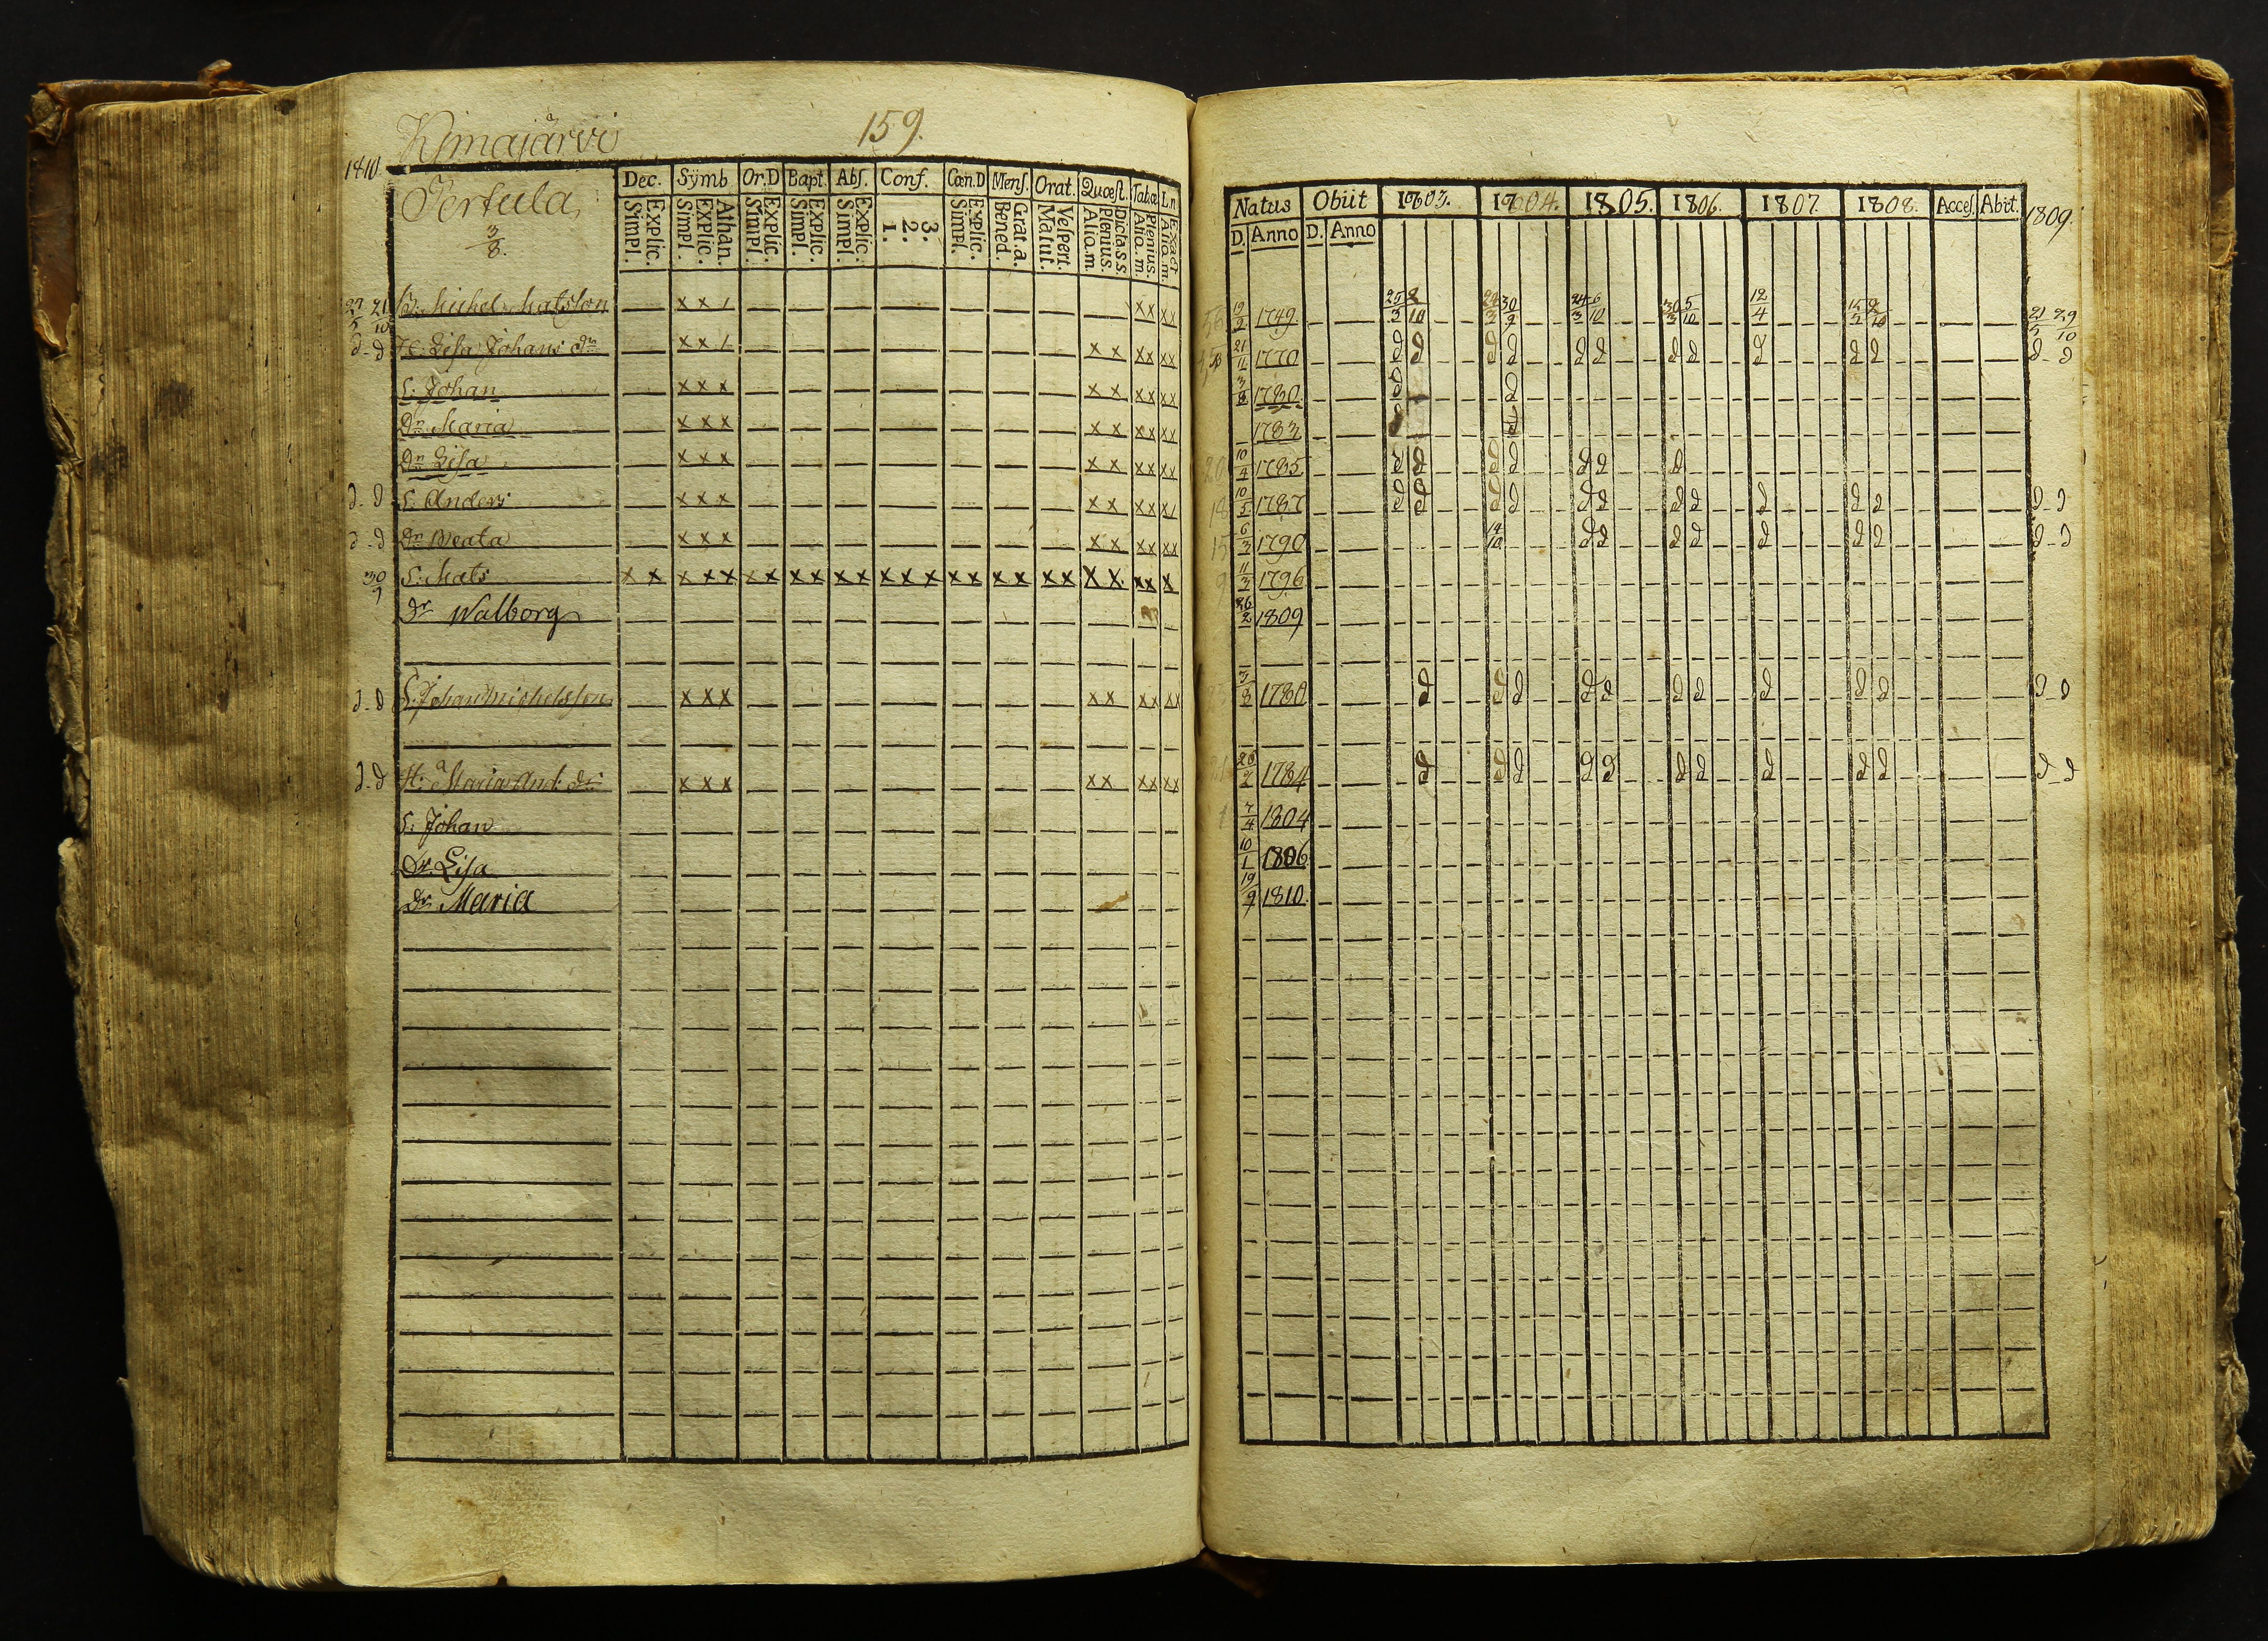 Kymäjärvi 159.
1810.
Pertula 3/8.
Dec. Symb Or.D Bapt. Abſ. Conf. Cœn.D Menſ. Orat. Quœſt. Tab.œ L.n
Explic. Simpl. Athan. Explic. Simpl. Explic. Simpl. Explic. Simpl. Explic. Simpl. 3. 2. 1. Explic. Simpl. Grat.a. Bened. Veſpert. Matut. Dicta S.S. Plenius. Aliq.m. Plenius. Aliq.m. Exact Aliq.m.
Natus Obiit 1803. 1804. 1805. 1806. 1807. 1808. Acceſ. Abit. 1809.
D. Anno D. Anno
Michel Matsson x x / xx xx 19/2 1749 25/3 24/3 30/9 12/4
d - d H: Lisa Johans dr x x / x x xx xx 1770 d d d d d d d d d d d d - d
S: Johan x x x x x xx xx 3/8 1780 d d
Dr Maria x x x x x xx xx 1783 d
Dr Lisa x x x x x xx xx 20 10/4 1785 d d d d d d d
d - d S: Anders x x x x x xx x/ 18 10/5 1787 d d d d d d d d d d d d - d
d - d Dr Beata x x x x x xx xx 15 6/3 1790 14/10 d d d d d d d d - d
30/9 S: Mats x x x x x x x x x x x x x x x x x x x x x x x xx x 9 11/3 1796
Dr Walborg 26/2 1809
d - d S. Johan Michelsson x x x x x xx xx 3/8 1780 d d d d d d d d d d d - d
d - d H: Maria And: dr x x x x x xx xx 1784 d d d d d d d d d d d - d
S: Johan 1 7/4 1804
Dr Lisa 10/1 1806
Dr Maria 19/9 1810